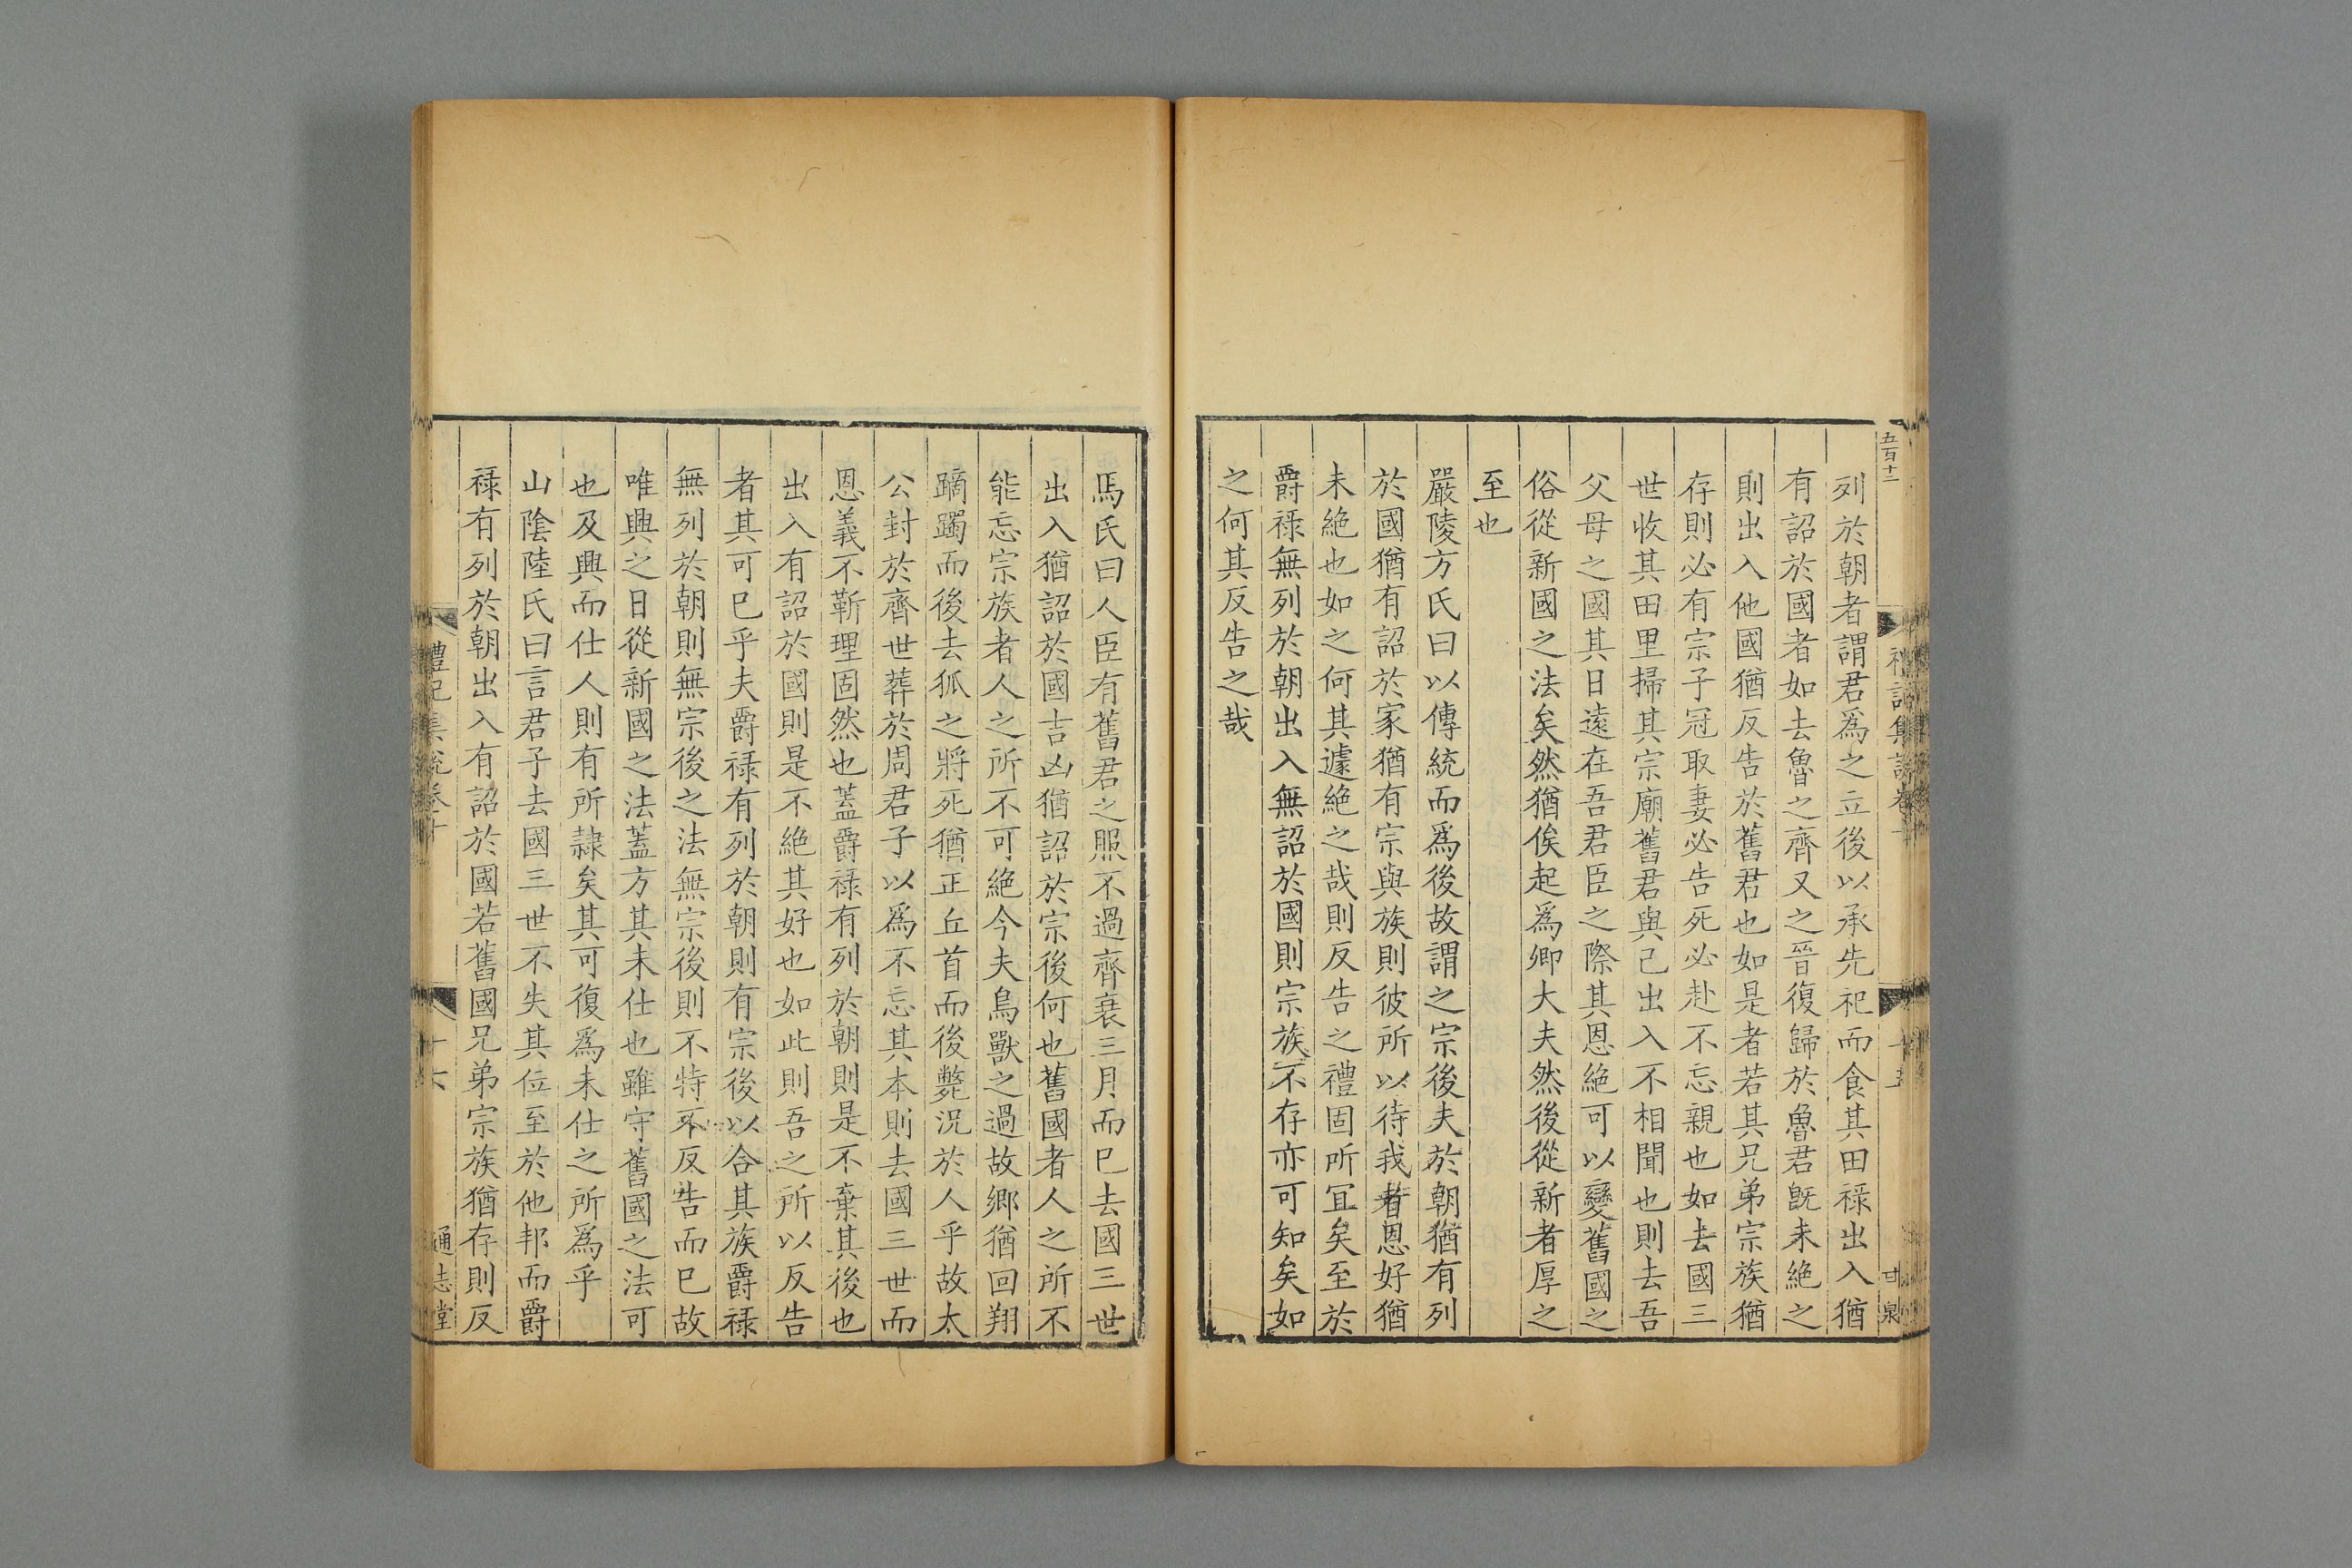 五百十二
列於朝者謂君爲之立後以承先祀而食其田祿出入猶
有詔於國者如去魯之齊又之晉復歸於魯君旣未絶之
則出入他國猶反告於舊君也如是者若其兄弟宗族猶
存則必有宗子冠取妻必告死必赴不忘親也如去國三
世收其田里掃其宗廟舊君與己出入不相聞也則去吾
父母之國其日遠在吾君臣之際其恩絶可以變舊國之
俗從新國之法矣然猶俟起爲卿大夫然後從新者厚之
至也
嚴陵方氏曰以傳統而爲後故謂之宗後夫於朝猶有列
於國猶有詔於家猶有宗與族則彼所以待我者恩好猶
未絶也如之何其遽絶之哉則反告之禮固所冝矣至於
爵祿無列於朝出入無詔於國則宗族不存亦可知矣如
之何其反告之哉
甘泉
馬氏曰人臣有舊君之服不過齊衰三月而巳去國三世
出入猶詔於國吉凶猶詔於宗後何也舊國者人之所不
能忘宗族者人之所不可絶今夫鳥獸之過故鄉猶回翔
蹢躅而後去狐之將死猶正丘首而後斃況於人乎故太
公封於齊世葬於周君子以爲不忘其本則去國三世而
恩義不斬理固然也蓋爵祿有列於朝則是不棄其後也
出入有詔於國則是不絶其好也如此則吾之所以反告
者其可巳乎夫爵祿有列於朝則有宗後以合其族爵祿
無列於朝則無宗後之法無宗後則不特不反告而巳故
唯興之日從新國之法蓋方其未仕也雖守舊國之法可
也及興而仕人則有所隷矣其可復爲未仕之所爲乎
山隂陸氏曰言君子去國三世不失其位至於他邦而爵
祿有列於朝出入有詔於國若舊國兄弟宗族猶存則反
禮記集說卷十
十六
通志堂